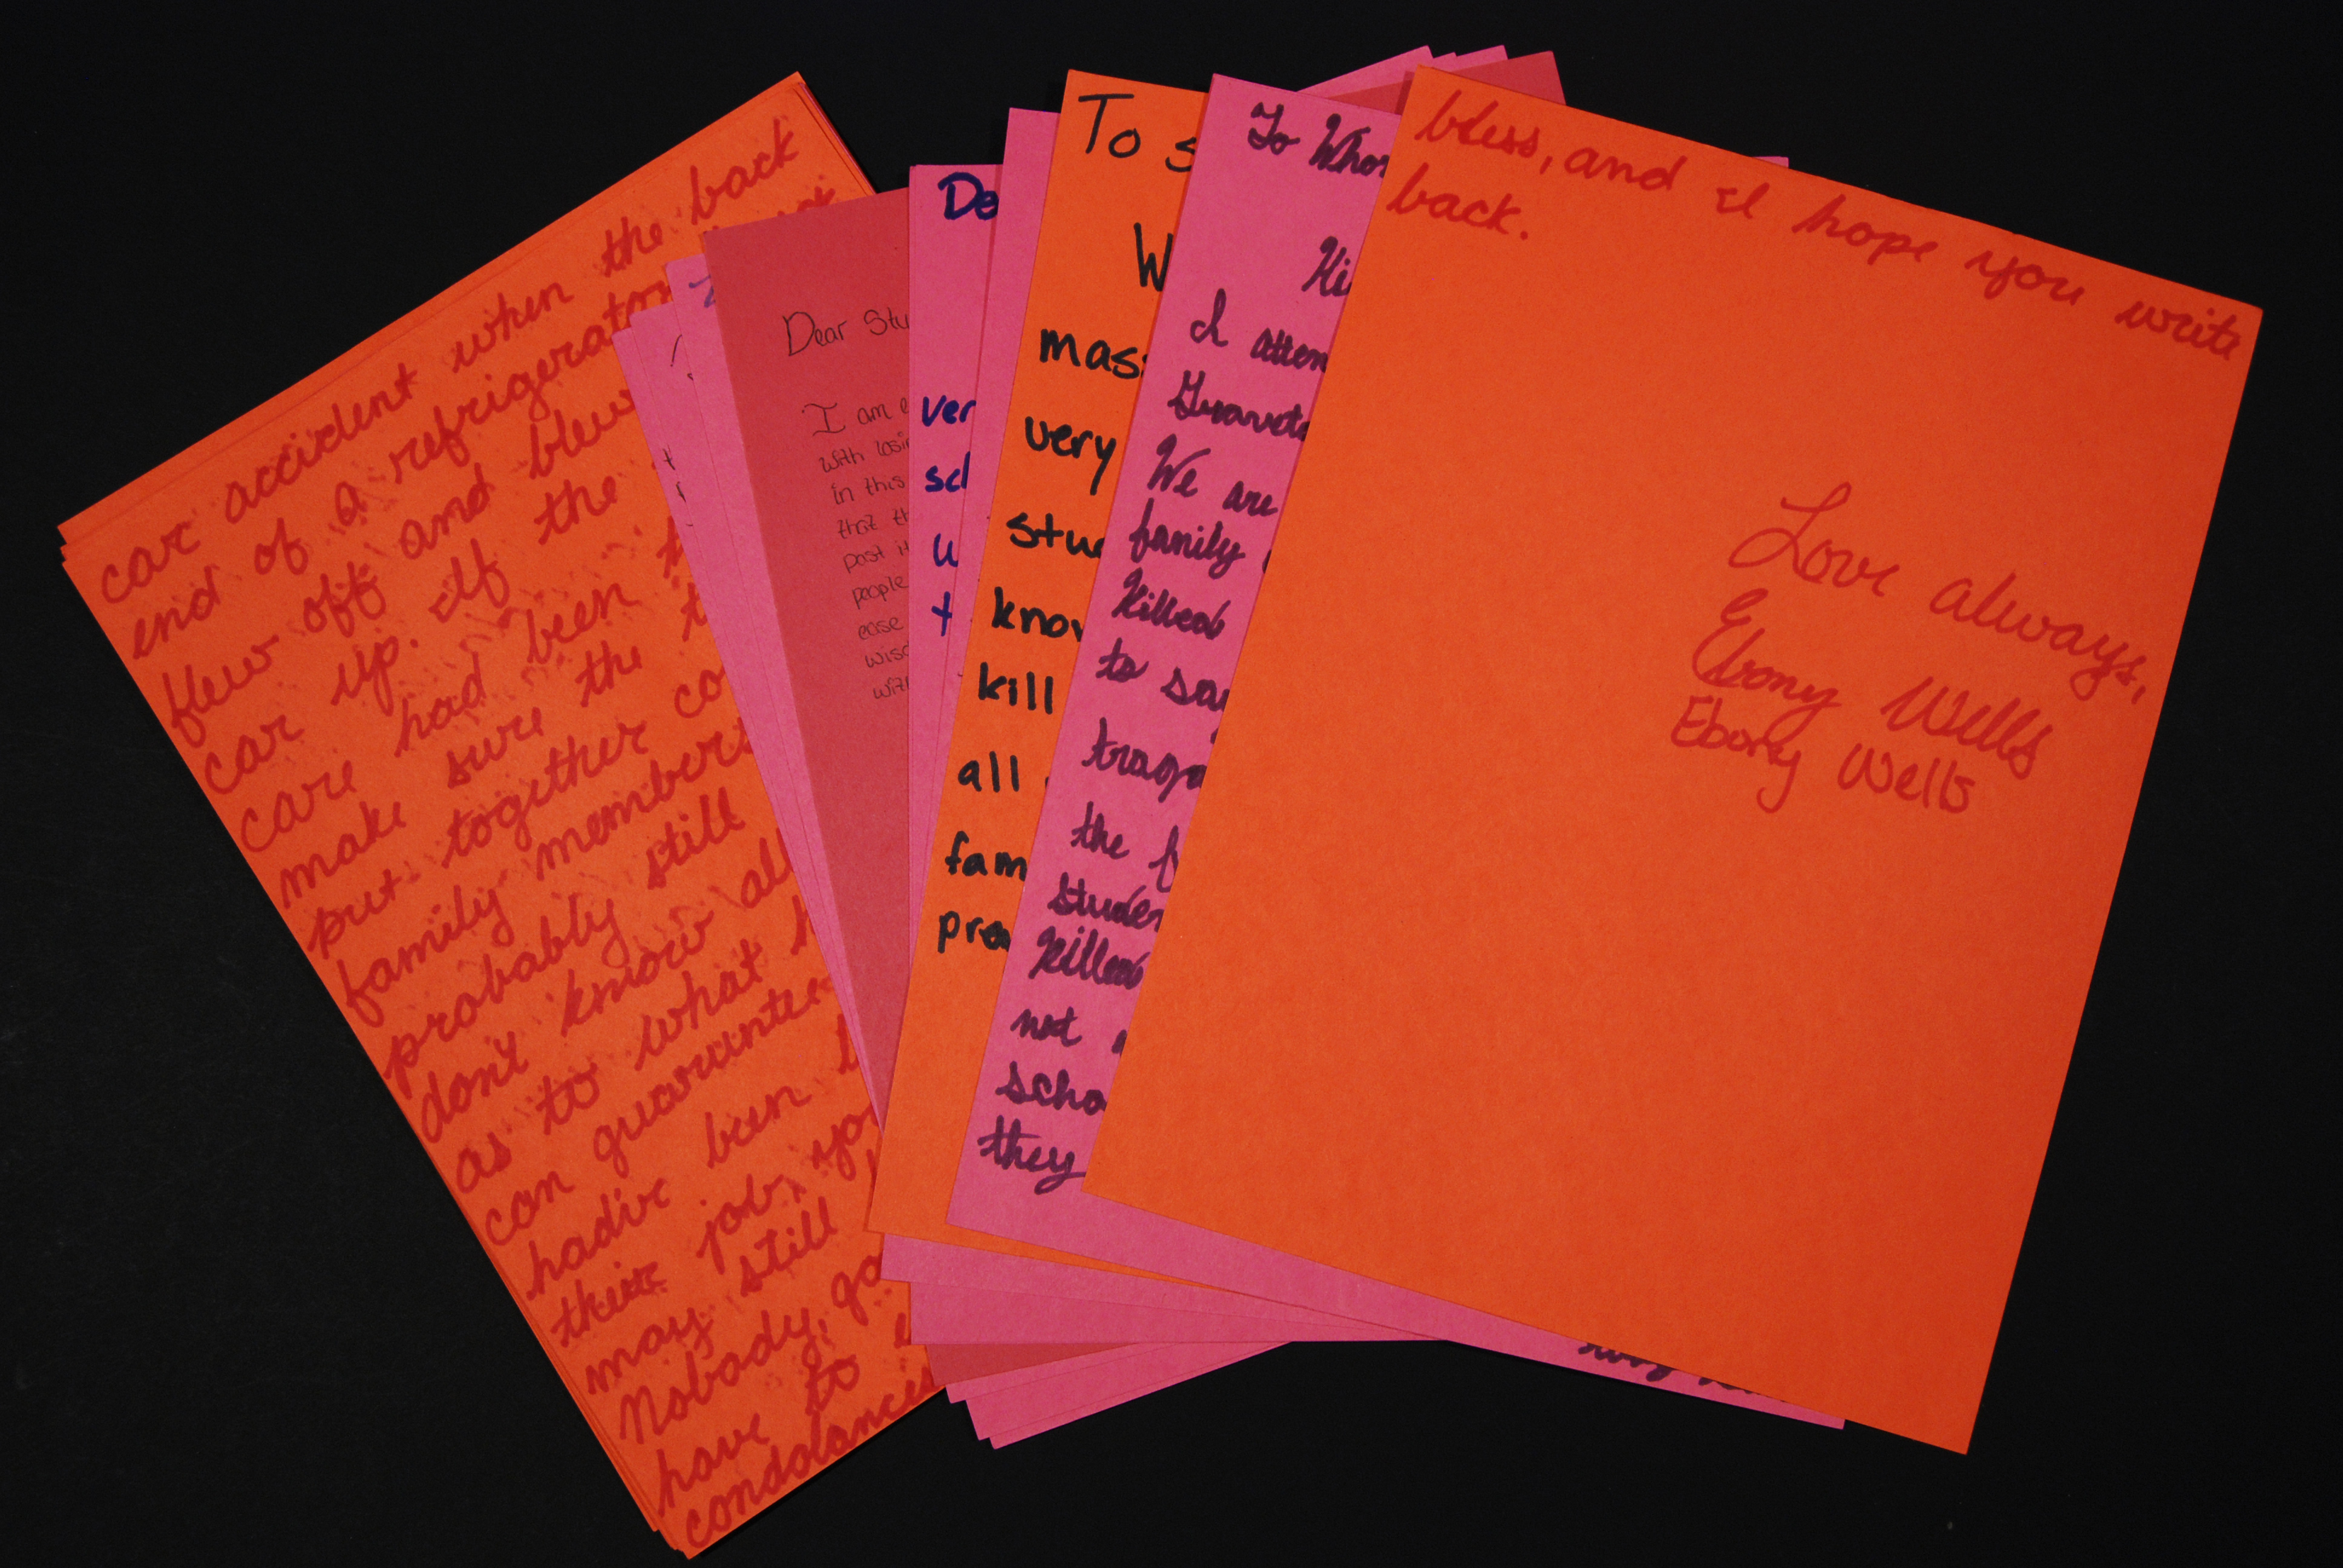 car accident when the back
end of a refrigerator
flew off and blew
car up. If the
care had been
make sure the
put together
family members
probably still
don't know all
as to what
can guaruntee
hadve been
their job, you
may still
Nobody, go
have to
condolances
Dear Stu
I am e
with losin
in this
that th
past it
people
ease
wisd
with
De
ver
scl
u
t
To s
W
mass
very
stud
know
kill
all
fam
prea
To Whom
Hi
I atten
Gravett
We are
family
killed
to say
trage
the f
studen
killed
not
scho
they
bless, and I hope you write
back.
Love always,
Ebony Wells
Ebony Wells